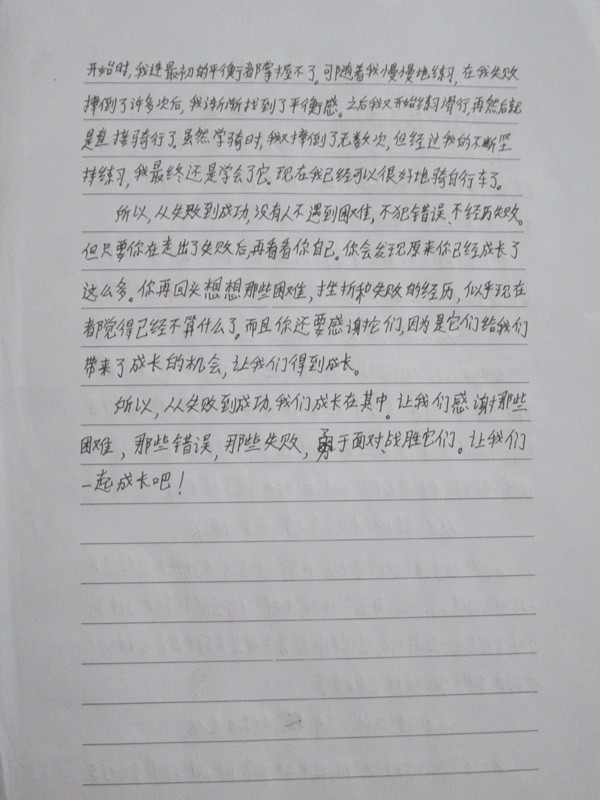 开始时,我连最初的平衡都掌握不了。可随着我慢慢地练习,在我失败
摔倒了许多次后,我渐渐找到了平衡感。之后我又开始练习滑行,再然后就
是直接骑行了。虽然学骑时,我又摔倒了无数次,但经过我的不断坚
持练习,我最终还是学会了它。现在我已经可以很好地骑自行车了。
所以,从失败到成功,没有人不遇到困难,不犯错误、不经历失败。
但只要你在走出了失败后,再看看你自己。你会发现原来你已经成长了
这么多。你再回头想想那些困难,挫折和失败的经历,似乎现在
都觉得已经不算什么了。而且你还要感谢它们,因为是它们给我们
带来了成长的机会,让我们得到成长。
所以,从失败到成功,我们成长在其中。让我们感谢那些
困难,那些错误,那些失败,勇于面对、战胜它们。让我们
一起成长吧!